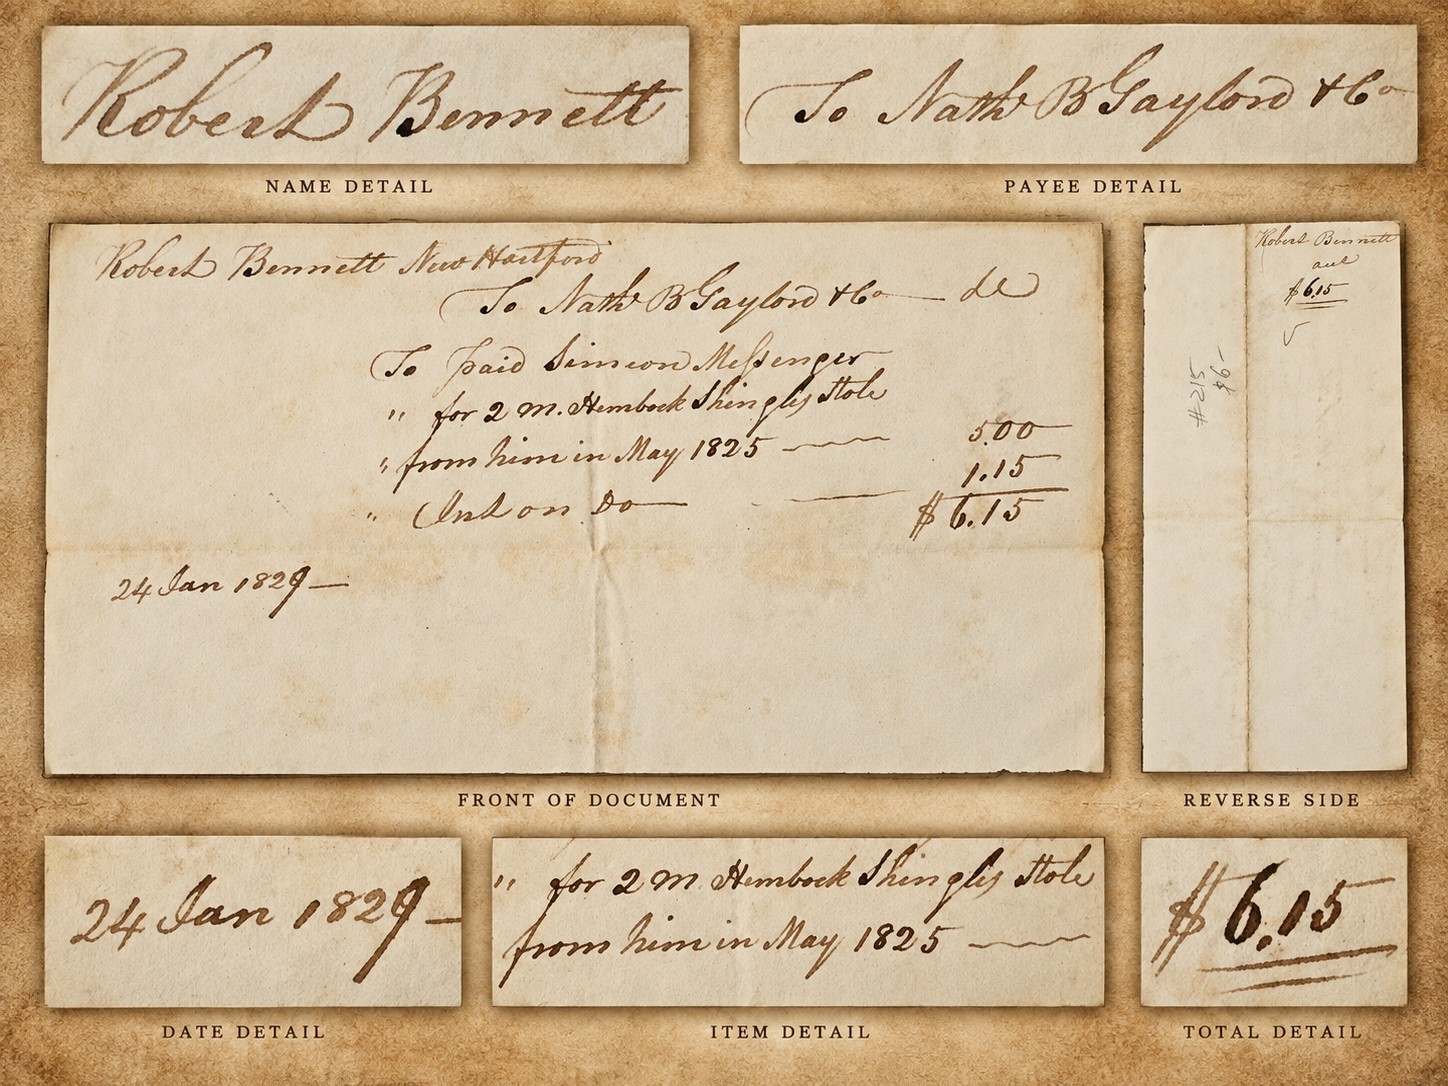 Robert Bennett
To Nathl B Gaylord & Co
NAME DETAIL
PAYEE DETAIL
Robert Bennett New Hartford
To Nathl B Gaylord & Co — de
To paid Simeon Messenger
" for 2 m. Hemlock Shingles Stole
" from him in May 1825 — 5.00
" Int on Do — 1.15
$ 6.15
24 Jan 1829 —
Robert Bennett
$ 6.15
FRONT OF DOCUMENT
REVERSE SIDE
24 Jan 1829 —
" for 2 m. Hemlock Shingles Stole
from him in May 1825 —
$ 6.15
DATE DETAIL
ITEM DETAIL
TOTAL DETAIL